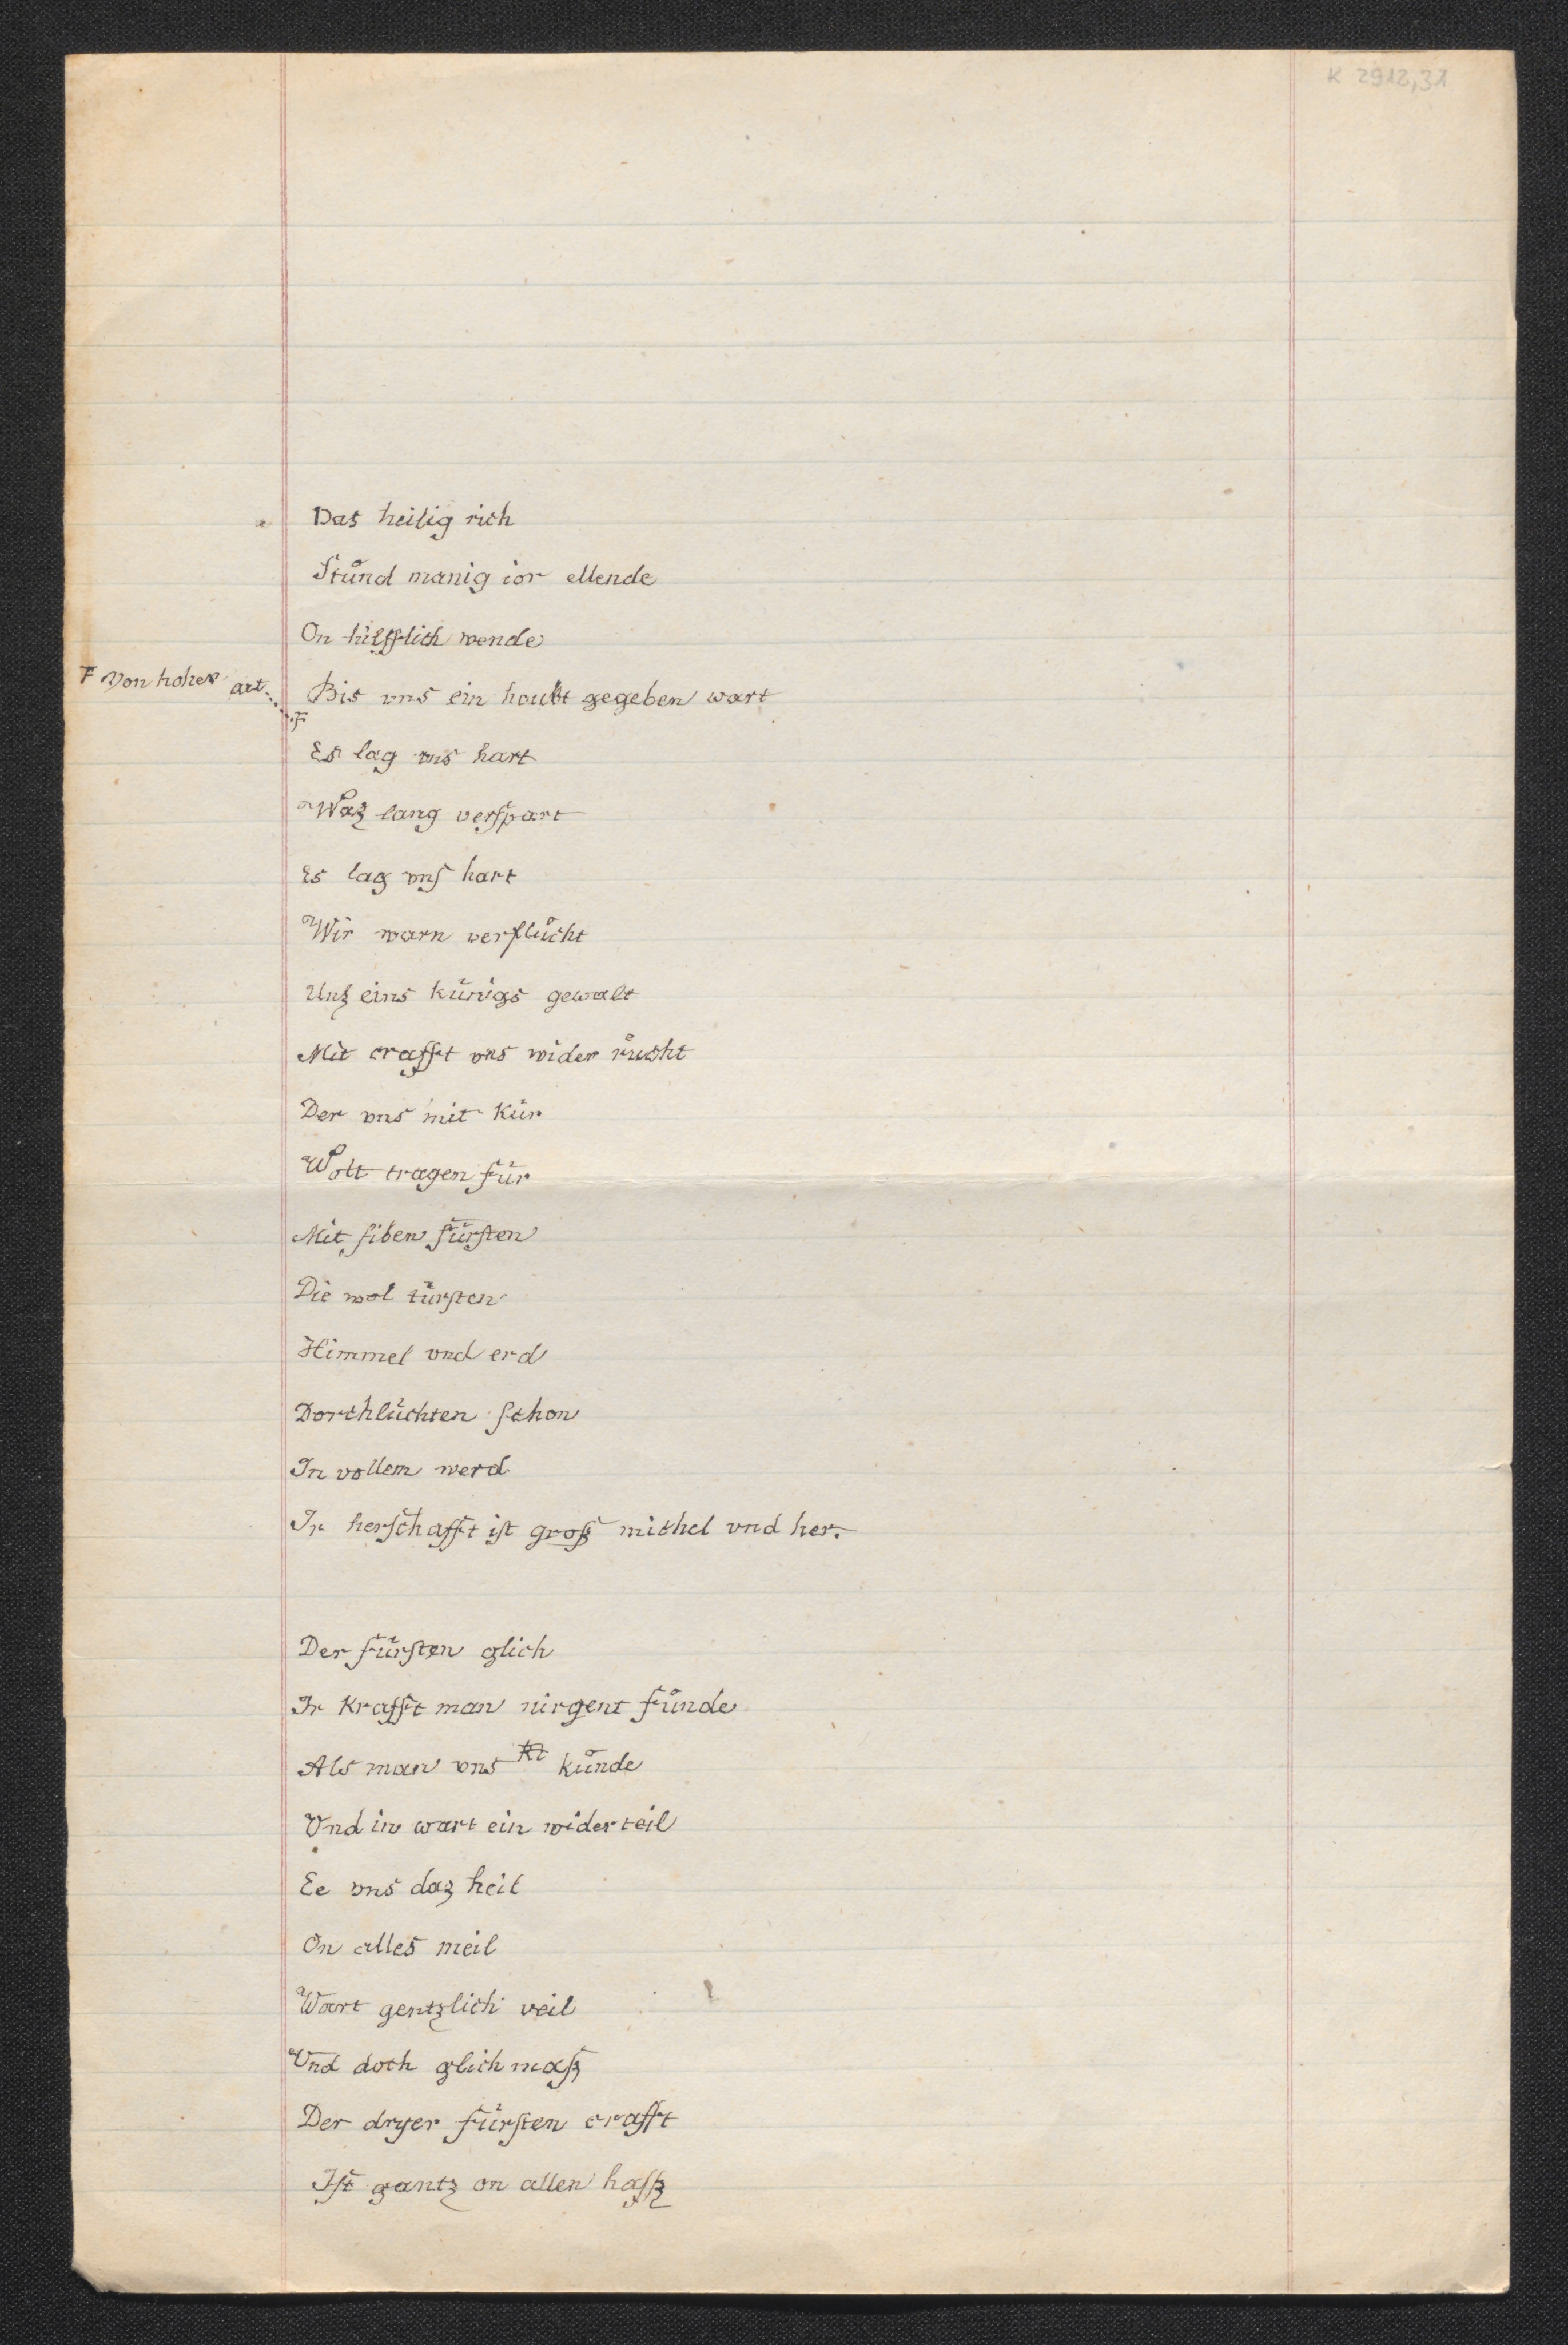 K 2912,31
Das heilig rich
Stůnd manig ior ellende
On hilfflich wende
Bis vns ein houbt gegeben wart
F von hoher art
F
Es lag vns hart
Waz lang verſpart
Es lag vnſ hart
Wir warn verflůcht
Unz eins künigs gewalt
Mit crafft vns wider růcht
Der vns mit kür
Wolt tragen für
Mit ſiben fürſten
Die wol türſten
Himmel vnd erd
Dorchlüchten ſchon
In vollem werd
Ir herſchafft iſt groſz michel vnd her.
Der fürſten glich
Ir krafft man nirgent fůnde
Als man vns kůnde
Vnd in wart ein widerteil
Ee vns daz heil
On alles meil
Wart gentzlich veil
Vnd doch glich maſz
Der dryer fürſten crafft
Iſt gantz on allen haſſz